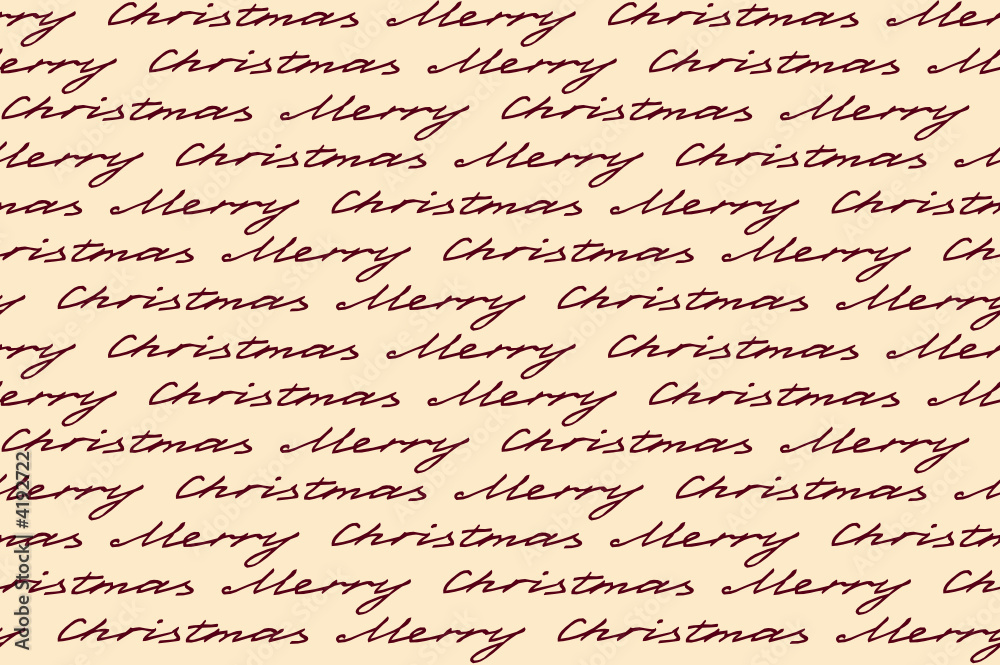 rry Christmas Merry Christmas Mer
erry Christmas Merry Christmas M
Christmas Merry Christmas Merry
Merry Christmas Merry Christmas M
mas Merry Christmas Merry Christm
ristmas Merry Christmas Merry Ch
y Christmas Merry Christmas Merry
rry Christmas Merry Christmas Mer
erry Christmas Merry Christmas M
Christmas Merry Christmas Merry
Merry Christmas Merry Christmas M
mas Merry Christmas Merry Christm
ristmas Merry Christmas Merry Ch
y Christmas Merry Christmas Merry
Adobe Stock | #4192722